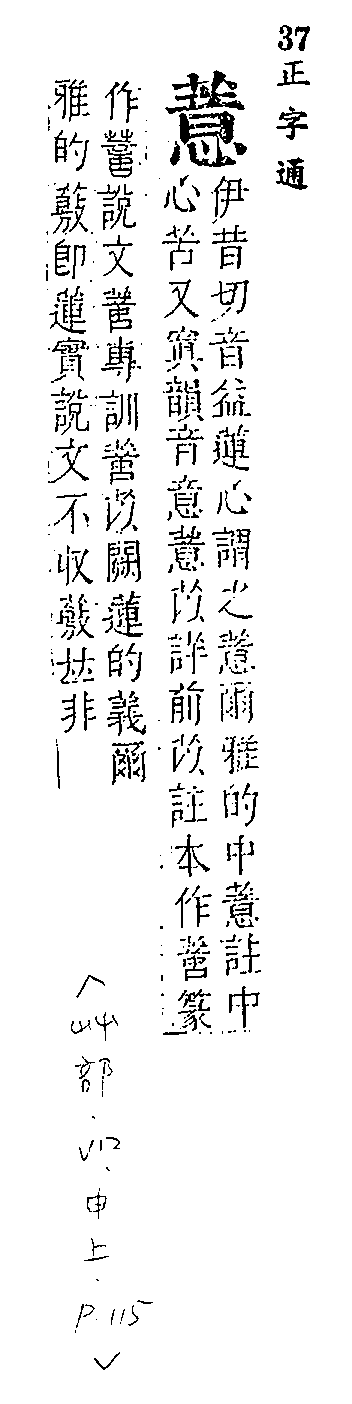 37 正字通
薏
伊昔切音益蓮心謂之薏爾雅的中薏註中
心苦又寘韻音意薏苡詳前苡註本作篆
作說文專訓苡闕蓮的義爾
雅的薂卽蓮實說文不收薂𠀤非
〈艸部．申上．P.115〉